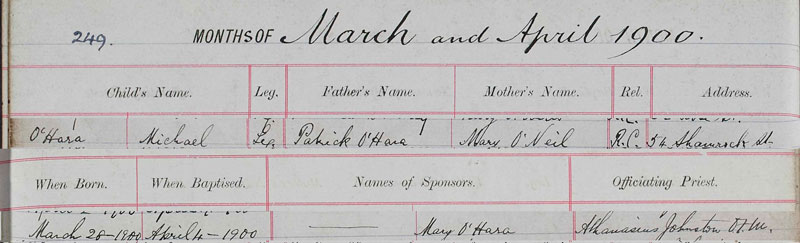 249. MONTHS OF March and April 1900.
Child's Name. Leg. Father's Name. Mother's Name. Rel. Address.
O'Hara Michael Leg. Patrick O'Hara Mary O'Neil R.C. 54 Shamrock St
When Born. When Baptised. Names of Sponsors. Officiating Priest.
March 28-1900 April 4-1900 Mary O'Hara Athanasius Johnston O.F.M.